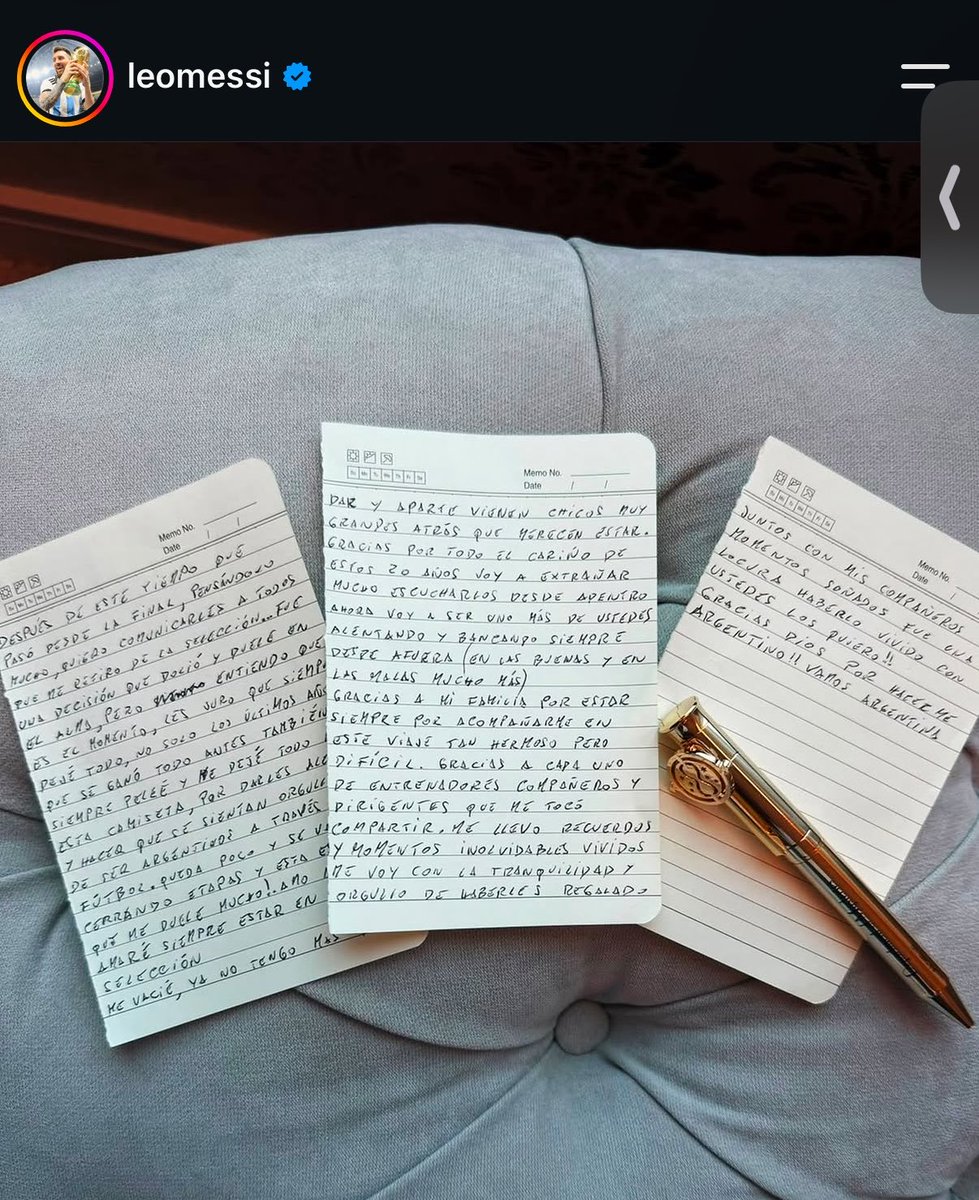 leomessi
Memo No.
Date / /
DESPUÉS DE ESTE TIEMPO QUE
PASÓ DESDE LA FINAL, PENSÁNDOLO
MUCHO, QUIERO COMUNICARLES A TODOS
QUE ME RETIRO DE LA SELECCIÓN... FUE
UNA DECISIÓN QUE DOLIÓ Y DUELE EN
EL ALMA, PERO ENTIENDO QUE
ES EL MOMENTO, LES JURO QUE SIEMP
DEJÉ TODO, NO SOLO LOS ÚLTIMOS AÑOS
QUE SE GANÓ TODO ANTES TAMBIÉN
SIEMPRE PELEÉ Y ME DEJÉ TODO
ESTA CAMISETA, POR DARLES ALE
Y HACER QUE SE SIENTAN ORGULL
DE SER ARGENTINOS A TRAVÉS
FÚTBOL. QUEDA POCO Y SE VA
CERRANDO ETAPAS Y ESTA ES
QUE ME DUELE MUCHO!. AMO
AMARÉ SIEMPRE ESTAR EN
SELECCIÓN
ME VACIÉ, YA NO TENGO MAS
Su Mo Tu We Th Fr Sa
Memo No.
Date / /
DAR Y APARTE VIENEN CHICOS MUY
GRANDES ATRÁS QUE MERECEN ESTAR.
GRACIAS POR TODO EL CARIÑO DE
ESTOS 20 AÑOS VOY A EXTRAÑAR
MUCHO ESCUCHARLOS DESDE ADENTRO
AHORA VOY A SER UNO MÁS DE USTEDES
ALENTANDO Y BANCANDO SIEMPRE
DESDE AFUERA (EN LAS BUENAS Y EN
LAS MALAS MUCHO MÁS)
GRACIAS A MI FAMILIA POR ESTAR
SIEMPRE POR ACOMPAÑARME EN
ESTE VIAJE TAN HERMOSO PERO
DIFÍCIL. GRACIAS A CADA UNO
DE ENTRENADORES COMPAÑEROS Y
DIRIGENTES QUE ME TOCÓ
COMPARTIR. ME LLEVO RECUERDOS
Y MOMENTOS INOLVIDABLES VIVIDOS
ME VOY CON LA TRANQUILIDAD Y
ORGULLO DE HABERLES REGALADO
Memo No.
Date /
JUNTOS CON MIS COMPAÑEROS
MOMENTOS SOÑADOS FUE UNA
LOCURA HABERLO VIVIDO CON
USTEDES LOS QUIERO!!
GRACIAS DIOS POR HACERME
ARGENTINO!! VAMOS ARGENTINA